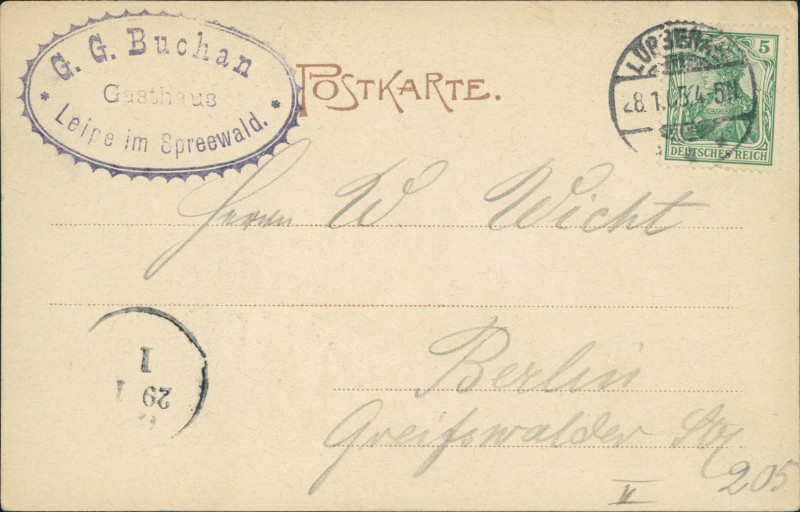 G. G. Buchan
Gasthaus
* Leipe im Spreewald. *
POSTKARTE.
5
DEUTSCHES REICH
Herrn W. Wicht
Berlin
Greifswalder Str
205
II
29 1
I